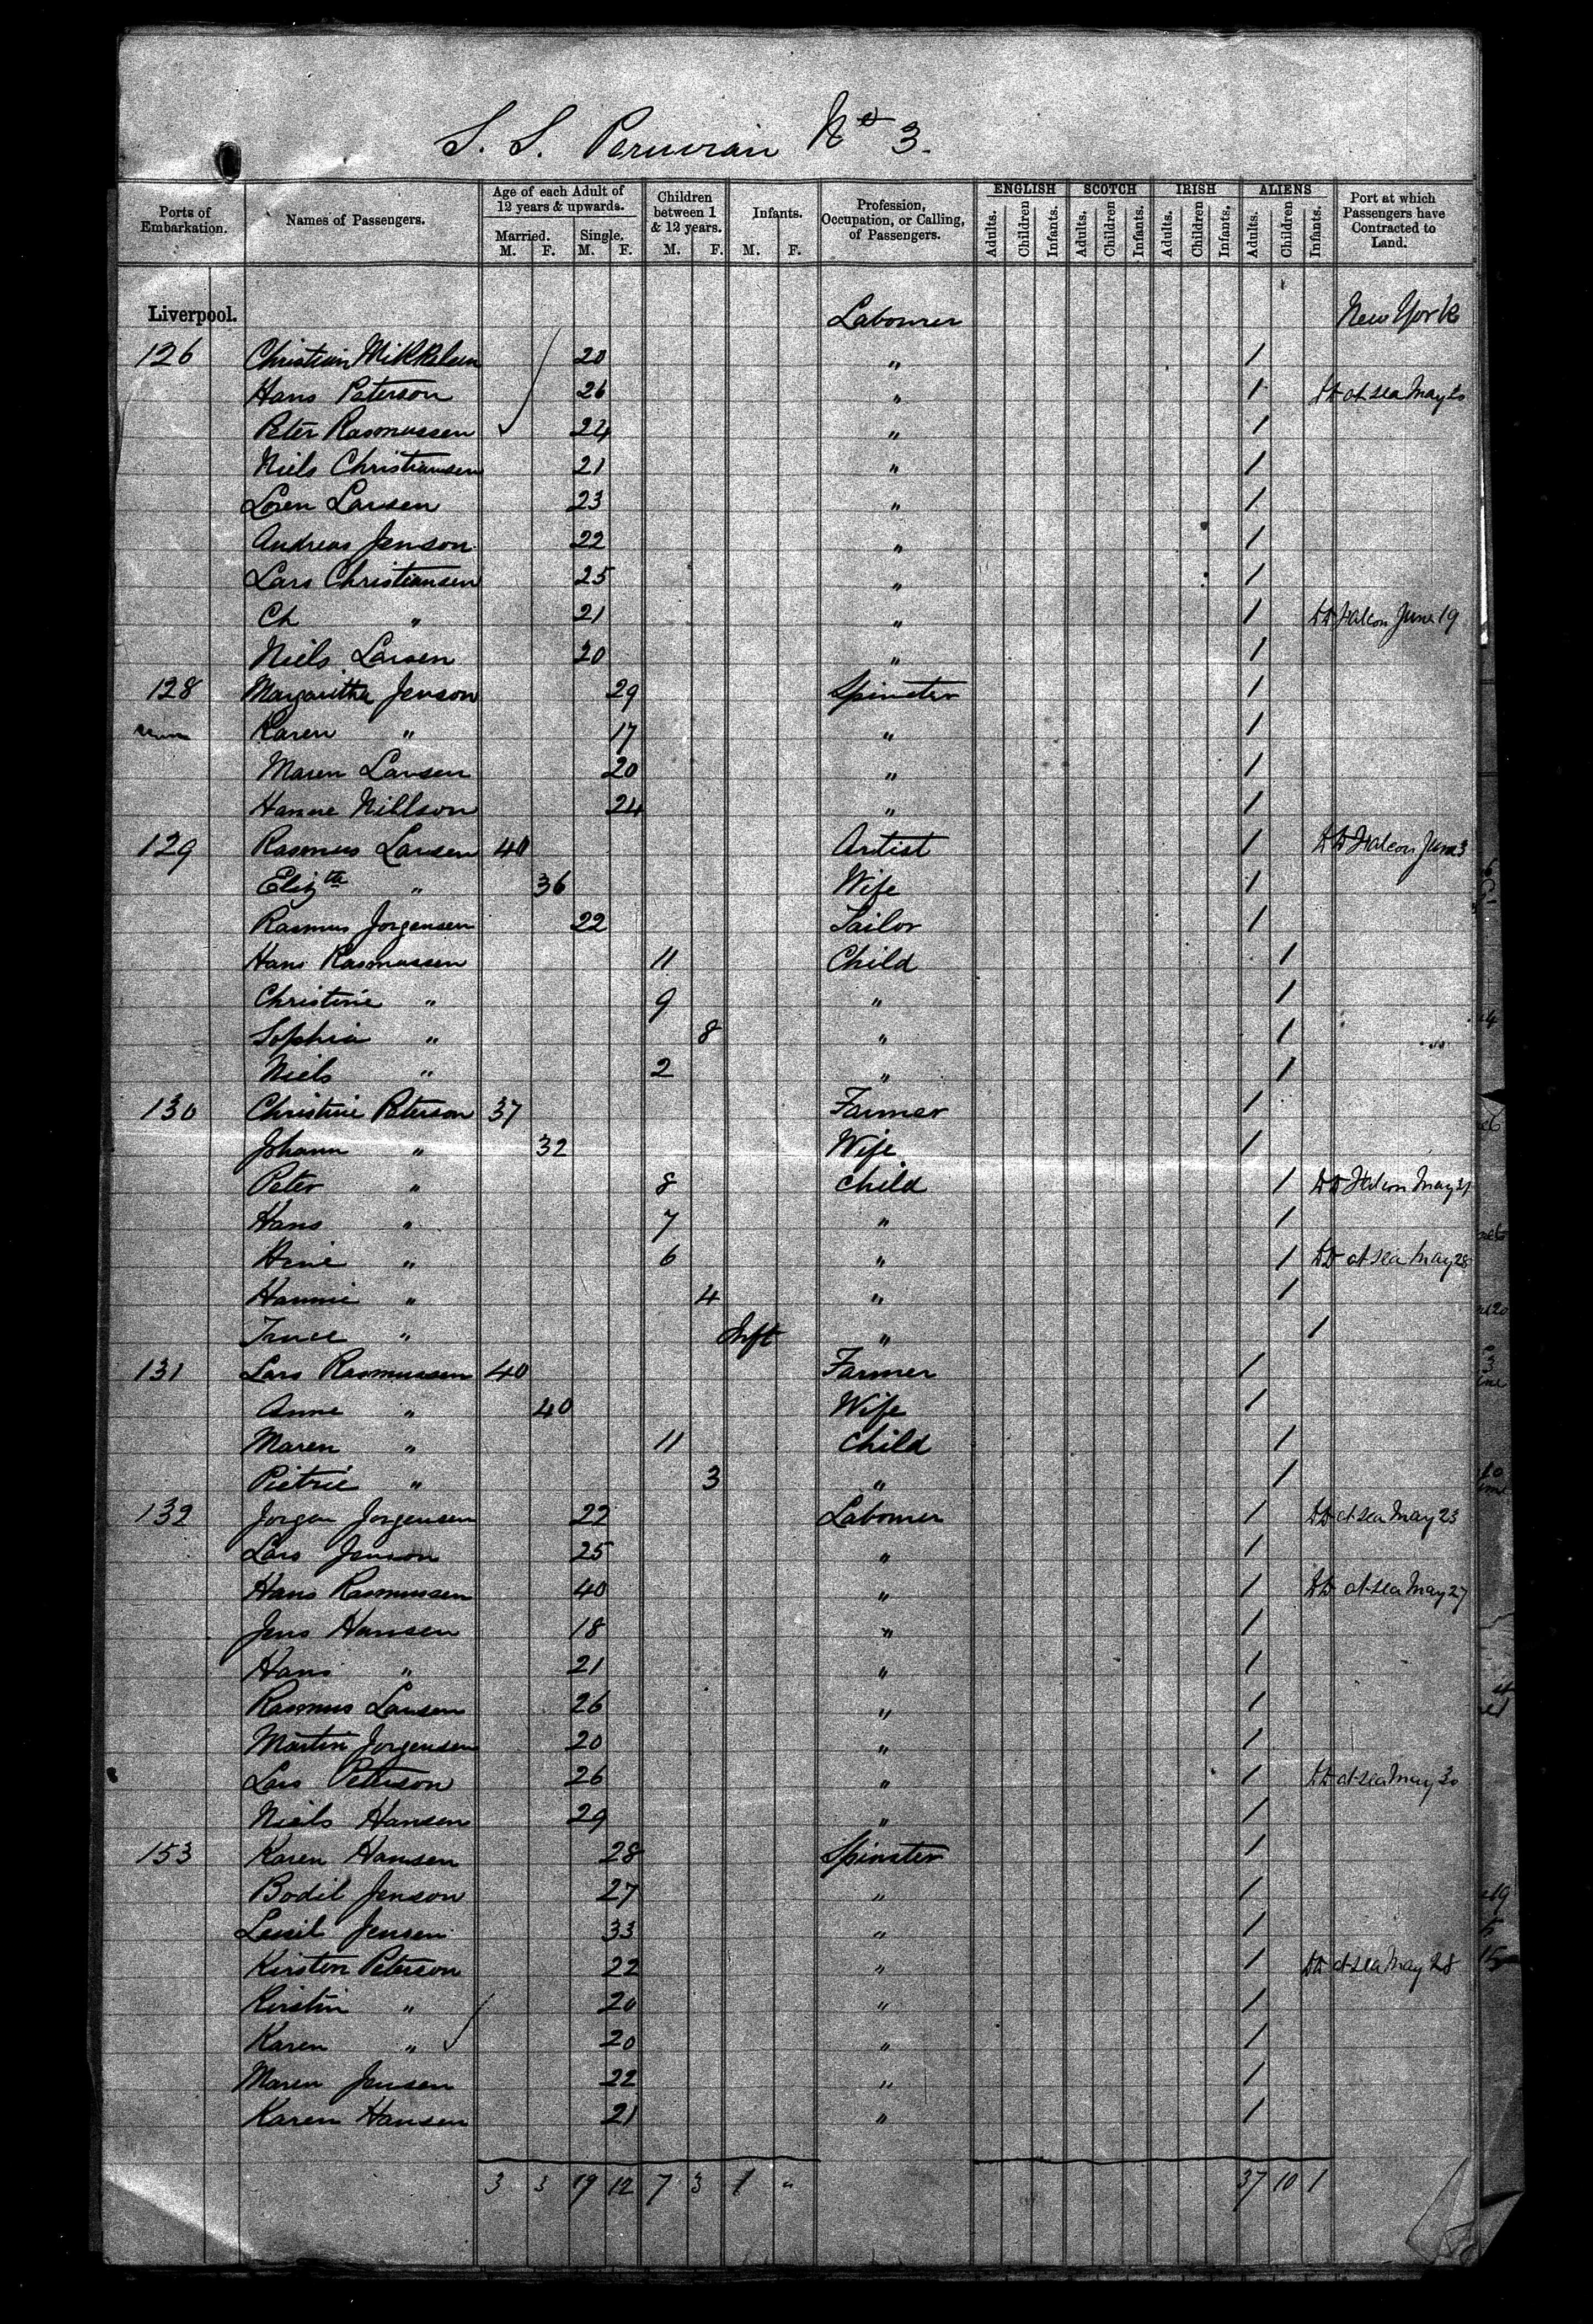 S. S. Peruvian No 3.
Ports of Embarkation. Names of Passengers. Age of each Adult of 12 years & upwards. Married. M. F. Single. M. F. Children between 1 & 12 years. M. F. Infants. M. F. Profession, Occupation, or Calling, of Passengers. ENGLISH Adults. Children Infants. SCOTCH Adults. Children Infants. IRISH Adults. Children Infants. ALIENS Adults. Children Infants. Port at which Passengers have Contracted to Land.
Liverpool. Labourer New York
126 Christian Mikkelsen 20 " 1
Hans Peterson 26 " 1 at sea May 20
Peter Rasmussen 24 " 1
Niels Christiansen 21 " 1
Soren Larsen 23 " 1
Andreas Jenson 22 " 1
Lars Christiansen 25 " 1
Ch " 21 " 1 June 19
Niels Larsen 20 " 1
128 Margaritha Jenson 29 Spinster 1
Karen " 17 " 1
Maren Larsen 20 " 1
Hanne Nillson 24 " 1
129 Rasmus Larsen 40 Artist 1 June 3
Elizth " 36 Wife 1
Rasmus Jorgensen 22 Sailor 1
Hans Rasmussen 11 Child 1
Christine " 9 " 1
Sophia " 8 " 1
Niels " 2 " 1
130 Christine Peterson 37 Farmer 1
Johann " 32 Wife 1
Peter " 8 Child 1 May 31
Hans " 7 " 1
" 6 " 1 DD at sea May 28
Hannie " 4 " 1
" Inft " 1
131 Lars Rasmussen 40 Farmer 1
Anne " 40 Wife 1
Maren " 11 Child 1
Pietrie " 3 " 1
132 Jorgen Jorgensen 22 Labourer 1 DD at sea May 23
Lars Jenson 25 " 1
Hans Rasmussen 40 " 1 DD at sea May 27
Jens Hansen 18 " 1
Hans " 21 " 1
Rasmus Larsen 26 " 1
Martin Jorgensen 20 " 1
Lars Peterson 26 " 1 DD at sea May 30
Niels Hansen 29 " 1
153 Karen Hansen 28 Spinster 1
Bodil Jenson 27 " 1
Jensen 33 " 1
Kirsten Peterson 22 " 1 DD at sea May 28
Kirstin " 20 " 1
Karen " 20 " 1
Maren Jensen 22 " 1
Karen Hansen 21 " 1
3 3 19 12 7 3 1 " 37 10 1